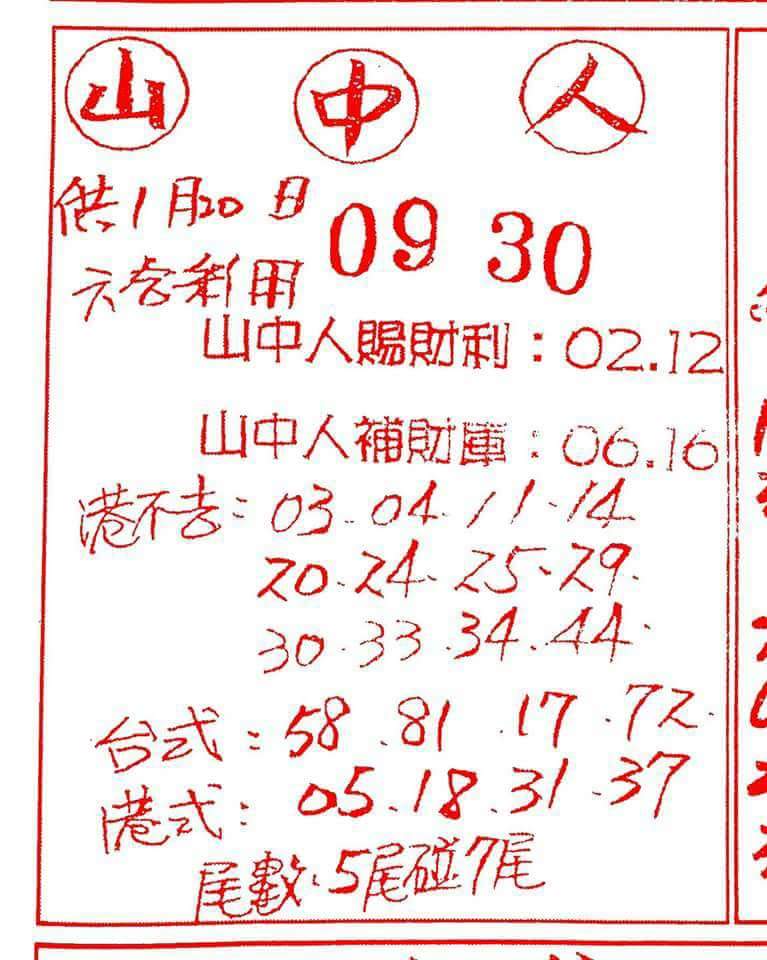 山 中 人
供1月20日
09 30
六合利用
山中人賜財利：02.12
山中人補財庫：06.16
港不去：03.04.11.14
20.24.25.29.
30.33.34.44.
台式：58.81.17.72.
港式：05.18.31.37
尾數：5尾碰7尾